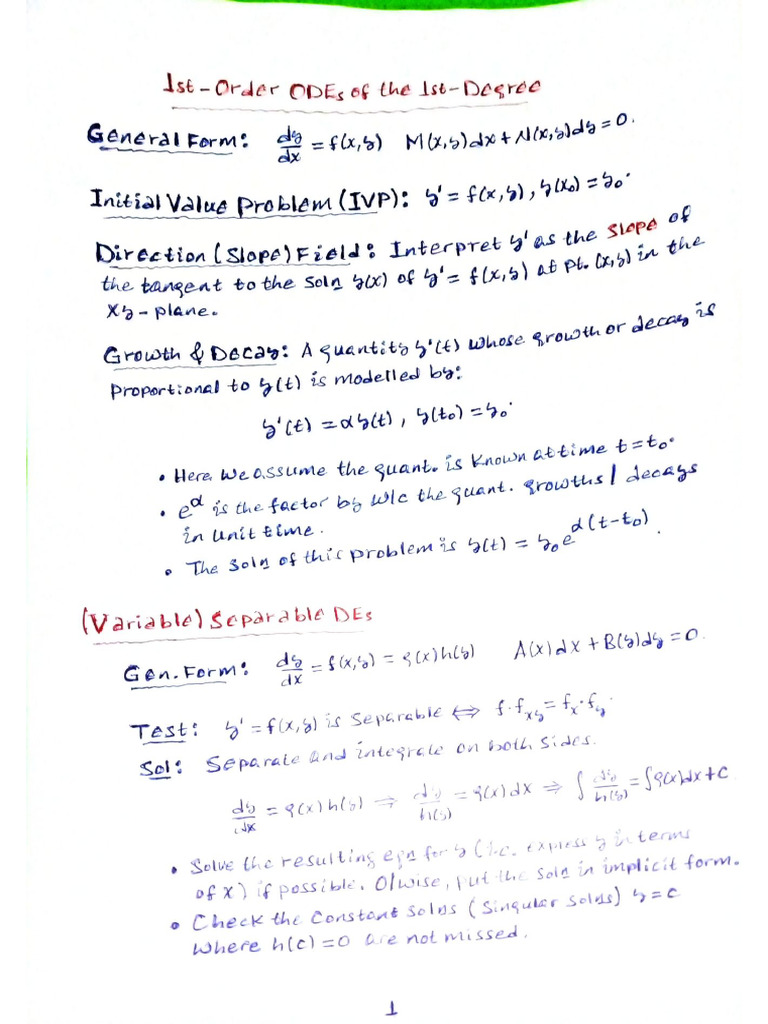 1st-Order ODEs of the 1st-Degree
General Form: dy/dx = f(x,y)   M(x,y)dx + N(x,y)dy = 0.
Initial Value Problem (IVP): y' = f(x,y), y(x₀) = y₀.
Direction (Slope) Field: Interpret y' as the slope of
the tangent to the soln y(x) of y' = f(x,y) at pt. (x,y) in the
xy-plane.
Growth & Decay: A quantity y'(t) whose growth or decay is
proportional to y(t) is modelled by:
y'(t) = αy(t), y(t₀) = y₀.
• Here we assume the quant. is known at time t = t₀.
• e^α is the factor by w/c the quant. growths / decays
in unit time.
• The soln of this problem is y(t) = y₀e^α(t-t₀).
(Variable) Separable DEs
Gen. Form: dy/dx = f(x,y) = g(x)h(y)   A(x)dx + B(y)dy = 0.
Test: y' = f(x,y) is separable ⟺ f·f_xy = f_x·f_y.
Sol: Separate and integrate on both sides.
dy/dx = g(x)h(y) ⟹ dy/h(y) = g(x)dx ⟹ ∫ dy/h(y) = ∫g(x)dx + C
• Solve the resulting eqn for y (i.e. express y in terms
of x) if possible. O/wise, put the soln in implicit form.
• Check the constant solns (singular solns) y = c
where h(c) = 0 are not missed.
1